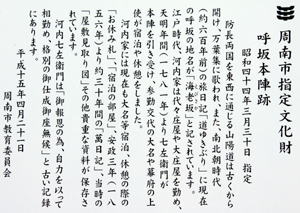 周南市指定文化財
呼坂本陣跡
昭和四十四年三月三十日 指定
防長両国を東西に通じる山陽道は古くから
開け、万葉集に歌われ、また、南北朝時代
(約六百年前)の旅日記「道ゆきぶり」に現在
の呼坂の地名が「海老坂」と記されています。
江戸時代、河内家は代々庄屋や大庄屋を勤め、
天明年間(一七八一年)より七左衛門が
本陣を引き受け、参勤交代の大名や幕府の上
使が宿泊や休憩をしていました。
河内家には現在も大名等宿泊、休憩の際の
「お休み札」、宿泊の部屋割、安政二年(一八
五六年)より約三十年間の「萬日記」、当時の
「屋敷見取り図」その他貴重な資料が保存さ
れています。
河内七左衛門は「御報恩の為、自力を以って
相勤め、格別の御仕成御座無候」と古い記録
にあります。
平成十五年四月二十一日
周南市教育委員会